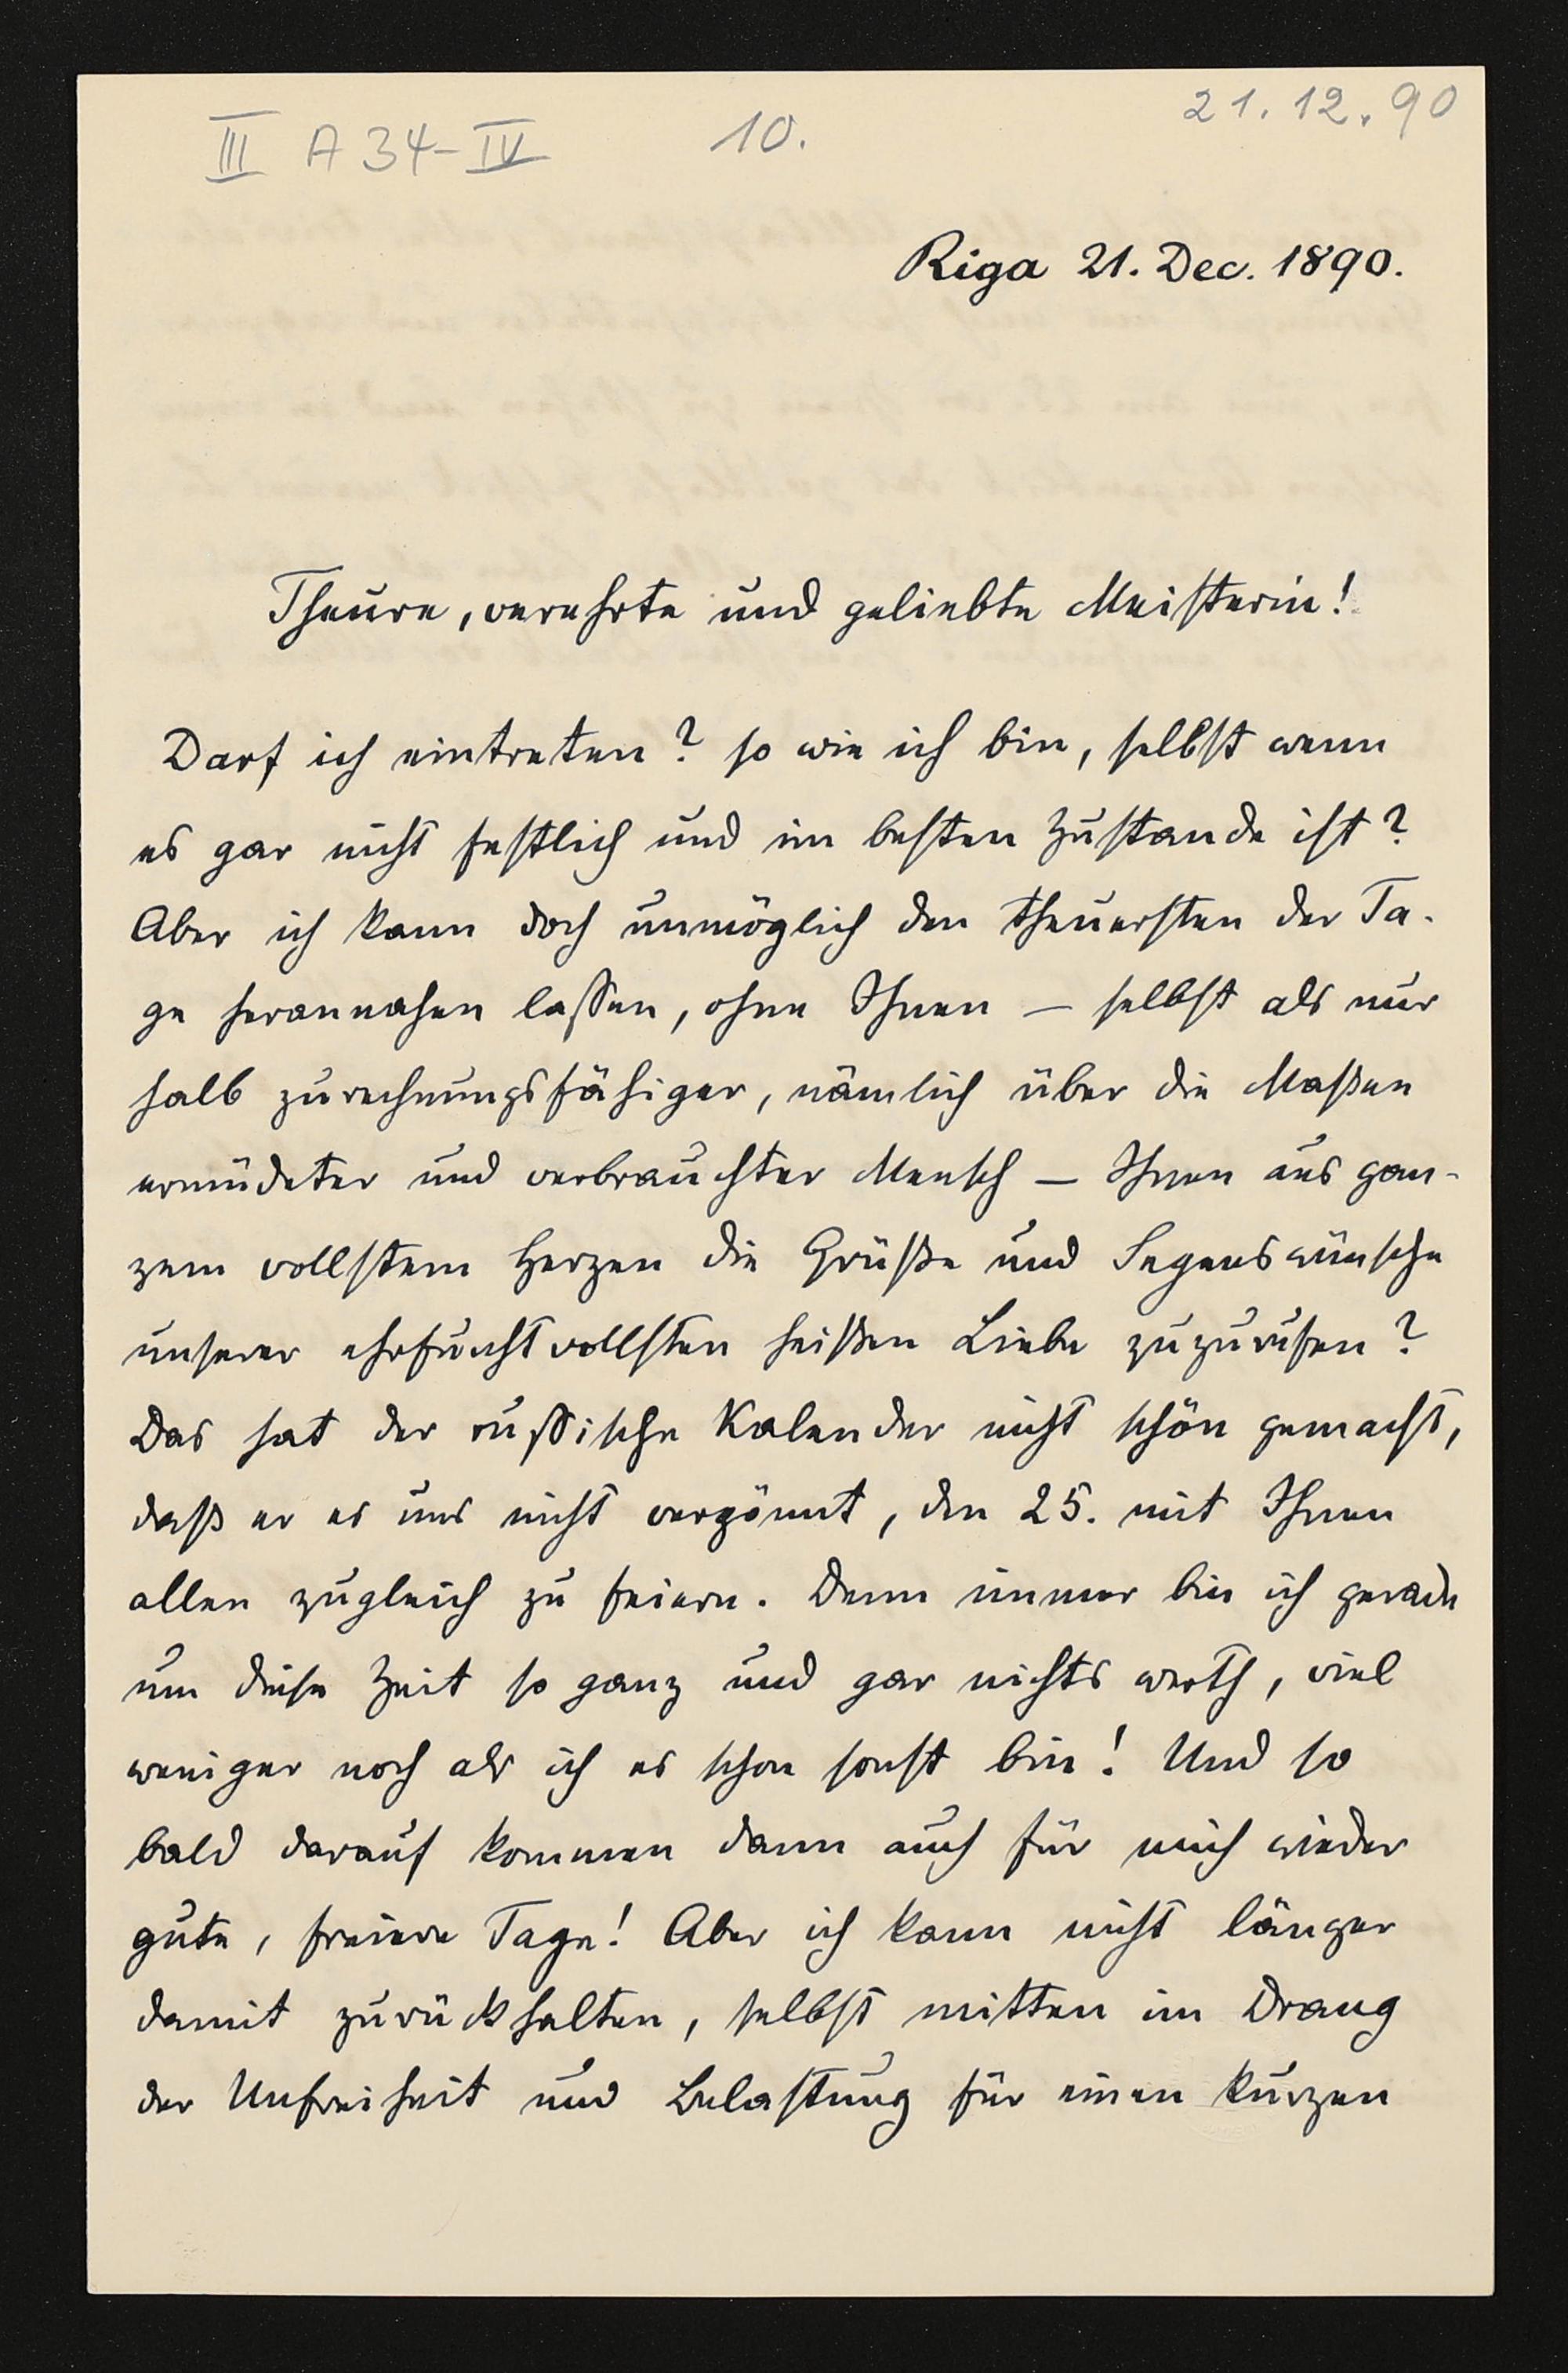 III A 34-IV 10. 21.12.90
Riga 21. Dec. 1890.
Theure, verehrte und geliebte Meisterin!
Darf ich eintreten? so wie ich bin, selbst wenn
es gar nicht festlich und im besten Zustande ist?
Aber ich kann doch unmöglich den theuersten der Ta-
ge herannahen lassen, ohne Ihnen — selbst als nur
halb zurechnungsfähiger, nämlich über die Maßen
ermüdeter und verbrauchter Mensch — Ihnen aus gan-
zem vollstem Herzen die Grüße und Segenswünsche
unserer ehrfurchtvollsten heißen Liebe zuzurufen?
Das hat der russische Kalender nicht schön gemacht,
daß er es uns nicht vergönnt, den 25. mit Ihnen
allen zugleich zu feiern. Denn immer bin ich gerade
um diese Zeit so ganz und gar nichts werth, viel
weniger noch als ich es schon sonst bin! Und so
bald darauf kommen dann auch für mich wieder
gute, freiere Tage! Aber ich kann nicht länger
damit zurückhalten, selbst mitten im Drang
der Unfreiheit und Belastung für einen kurzen